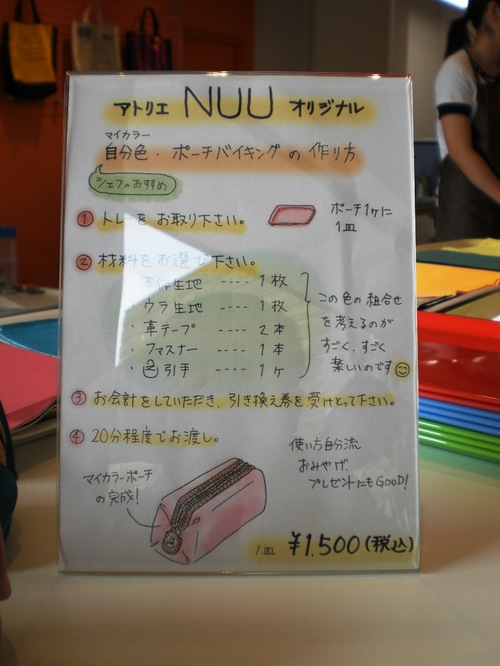 アトリエ NUU オリジナル
マイカラー
自分色・ポーチバイキングの作り方
シェフのおすすめ
① トレーをお取り下さい。
ポーチ1ケに
1皿
② 材料をお選び下さい。
生地 ---- 1枚
・ウラ生地 ---- 1枚
・革テープ ---- 2本
・ファスナー ---- 1本
・引手 ---- 1ケ
この色の組合せ
を考えるのが
すごく、すごく
楽しいのです
③ お会計をしていただき、引き換え券を受けとって下さい。
④ 20分程度でお渡し。
マイカラーポーチ
の完成!
使い方自分流
おみやげ、
プレゼントにもGOOD!
1皿 ¥1,500(税込)